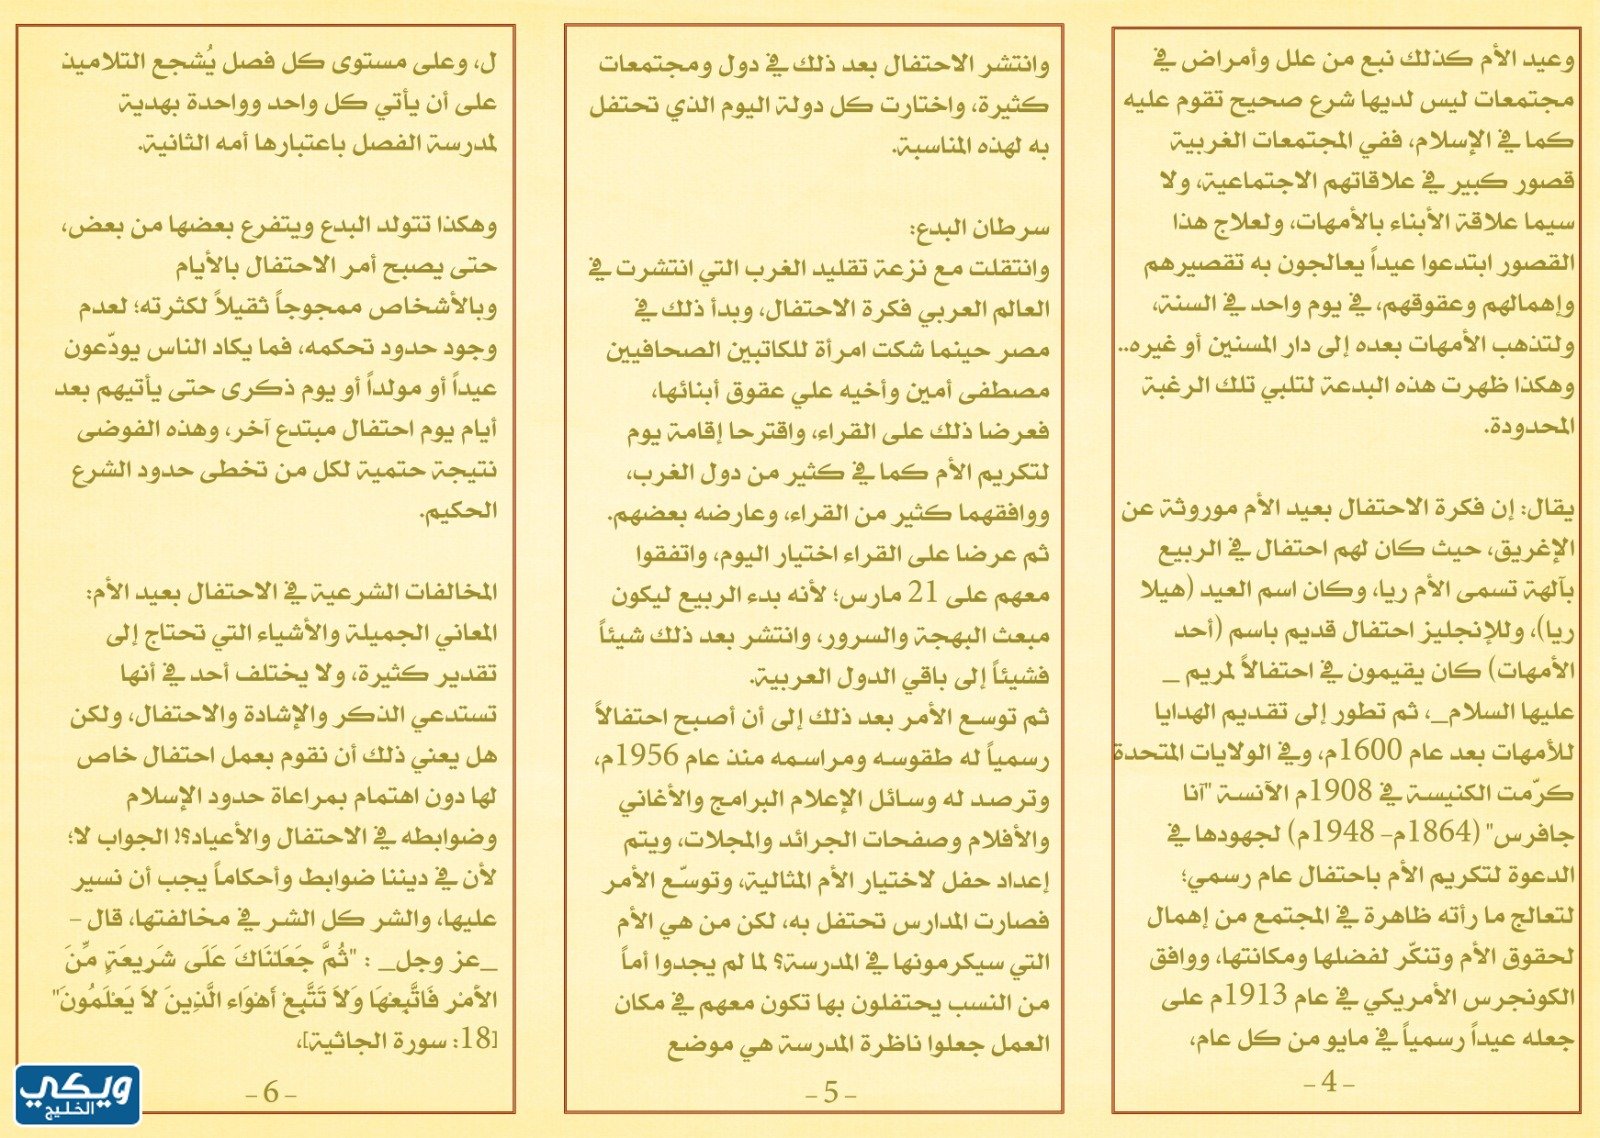 وعيد الأم كذلك نبع من علل وأمراض في
مجتمعات ليس لديها شرع صحيح تقوم عليه
كما في الإسلام، ففي المجتمعات الغربية
قصور كبير في علاقاتهم الاجتماعية، ولا
سيما علاقة الأبناء بالأمهات، ولعلاج هذا
القصور ابتدعوا عيداً يعالجون به تقصيرهم
وإهمالهم وعقوقهم، في يوم واحد في السنة،
ولتذهب الأمهات بعده إلى دار المسنين أو غيره..
وهكذا ظهرت هذه البدعة لتلبي تلك الرغبة
المحدودة.
يقال: إن فكرة الاحتفال بعيد الأم موروثة عن
الإغريق، حيث كان لهم احتفال في الربيع
بآلهة تسمى الأم ريا، وكان اسم العيد (هيلا
ريا)، وللإنجليز احتفال قديم باسم (أحد
الأمهات) كان يقيمون في احتفالاً لمريم _
عليها السلام_، ثم تطور إلى تقديم الهدايا
للأمهات بعد عام 1600م، وفي الولايات المتحدة
كرّمت الكنيسة في 1908م الآنسة "آنا
جافرس" (1864م- 1948م) لجهودها في
الدعوة لتكريم الأم باحتفال عام رسمي؛
لتعالج ما رأته ظاهرة في المجتمع من إهمال
لحقوق الأم وتنكّر لفضلها ومكانتها، ووافق
الكونجرس الأمريكي في عام 1913م على
جعله عيداً رسمياً في مايو من كل عام،
- 4 -
وانتشر الاحتفال بعد ذلك في دول ومجتمعات
كثيرة، واختارت كل دولة اليوم الذي تحتفل
به لهذه المناسبة.
سرطان البدع:
وانتقلت مع نزعة تقليد الغرب التي انتشرت في
العالم العربي فكرة الاحتفال، وبدأ ذلك في
مصر حينما شكت امرأة للكاتبين الصحافيين
مصطفى أمين وأخيه علي عقوق أبنائها،
فعرضا ذلك على القراء، واقترحا إقامة يوم
لتكريم الأم كما في كثير من دول الغرب،
ووافقهما كثير من القراء، وعارضه بعضهم.
ثم عرضا على القراء اختيار اليوم، واتفقوا
معهم على 21 مارس؛ لأنه بدء الربيع ليكون
مبعث البهجة والسرور، وانتشر بعد ذلك شيئاً
فشيئاً إلى باقي الدول العربية.
ثم توسع الأمر بعد ذلك إلى أن أصبح احتفالاً
رسمياً له طقوسه ومراسمه منذ عام 1956م،
وترصد له وسائل الإعلام البرامج والأغاني
والأفلام وصفحات الجرائد والمجلات، ويتم
إعداد حفل لاختيار الأم المثالية، وتوسّع الأمر
فصارت المدارس تحتفل به، لكن من هي الأم
التي سيكرمونها في المدرسة؟ لما لم يجدوا أماً
من النسب يحتفلون بها تكون معهم في مكان
العمل جعلوا ناظرة المدرسة هي موضع
- 5 -
ل، وعلى مستوى كل فصل يُشجع التلاميذ
على أن يأتي كل واحد وواحدة بهدية
لمدرسة الفصل باعتبارها أمه الثانية.
وهكذا تتولد البدع ويتفرع بعضها من بعض،
حتى يصبح أمر الاحتفال بالأيام
وبالأشخاص ممجوجاً ثقيلاً لكثرته؛ لعدم
وجود حدود تحكمه، فما يكاد الناس يودّعون
عيداً أو مولداً أو يوم ذكرى حتى يأتيهم بعد
أيام يوم احتفال مبتدع آخر، وهذه الفوضى
نتيجة حتمية لكل من تخطى حدود الشرع
الحكيم.
المخالفات الشرعية في الاحتفال بعيد الأم:
المعاني الجميلة والأشياء التي تحتاج إلى
تقدير كثيرة، ولا يختلف أحد في أنها
تستدعي الذكر والإشادة والاحتفال، ولكن
هل يعني ذلك أن نقوم بعمل احتفال خاص
لها دون اهتمام بمراعاة حدود الإسلام
وضوابطه في الاحتفال والأعياد؟! الجواب لا؛
لأن في ديننا ضوابط وأحكاماً يجب أن نسير
عليها، والشر كل الشر في مخالفتها، قال -
_عز وجل_ : "ثُمَّ جَعَلْنَاكَ عَلَى شَرِيعَةٍ مِّنَ
الأَمْرِ فَاتَّبِعْهَا وَلاَ تَتَّبِعْ أَهْوَاء الَّذِينَ لاَ يَعْلَمُونَ"
[18: سورة الجاثية]،
- 6 -
ويكي
الخليج